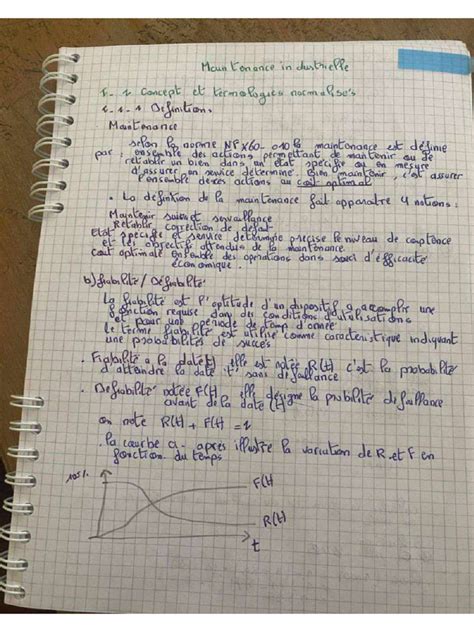 Maintenance industrielle
1.1 Concept et termologies normalisés
1.1.1 Définition:
Maintenance
selon la norme NFX60-010 la maintonance est définie
par: ensemble des actions permettant de maintenir ou de
retablir un bien dans un état spécifié ou en mesure
d'assurer un service determiné. Bien maintenir, c'est assurer
l'ensemble de ces actions au cout optimal
. La définition de la maintenance fait apparaître 4 notions:
Maintenir suivi et survaillance
Retablir, correction de defaut
Etat specifié et service determiné precise le niveau de
et les objectifs attendus de la maintenance.
Cout optimale ensemble des operations dans souci d'efficacité
économique.
b) fiabilité / Défiabilité
La fiabilité est l'aptitude d'un dispositif a accomplir une
fonction requise dans des conditions d'utilisations
et pour une période de temps
le terme fiabilité est utilisé comme caracteristique indiquant
une probabilités de succès
. Fiabilité a la date(t) elle est notée R(t) c'est la probabilité
d'attendre la date t sans defaillance
. Défiabilité notée F(t) elle désigne la probilité défaillance
avant de la date (t)
on note R(t) + F(t) = 1
. la courbe ci-apres illustre la variation de R et F en
fonction du temps
F(t)
R(t)
t